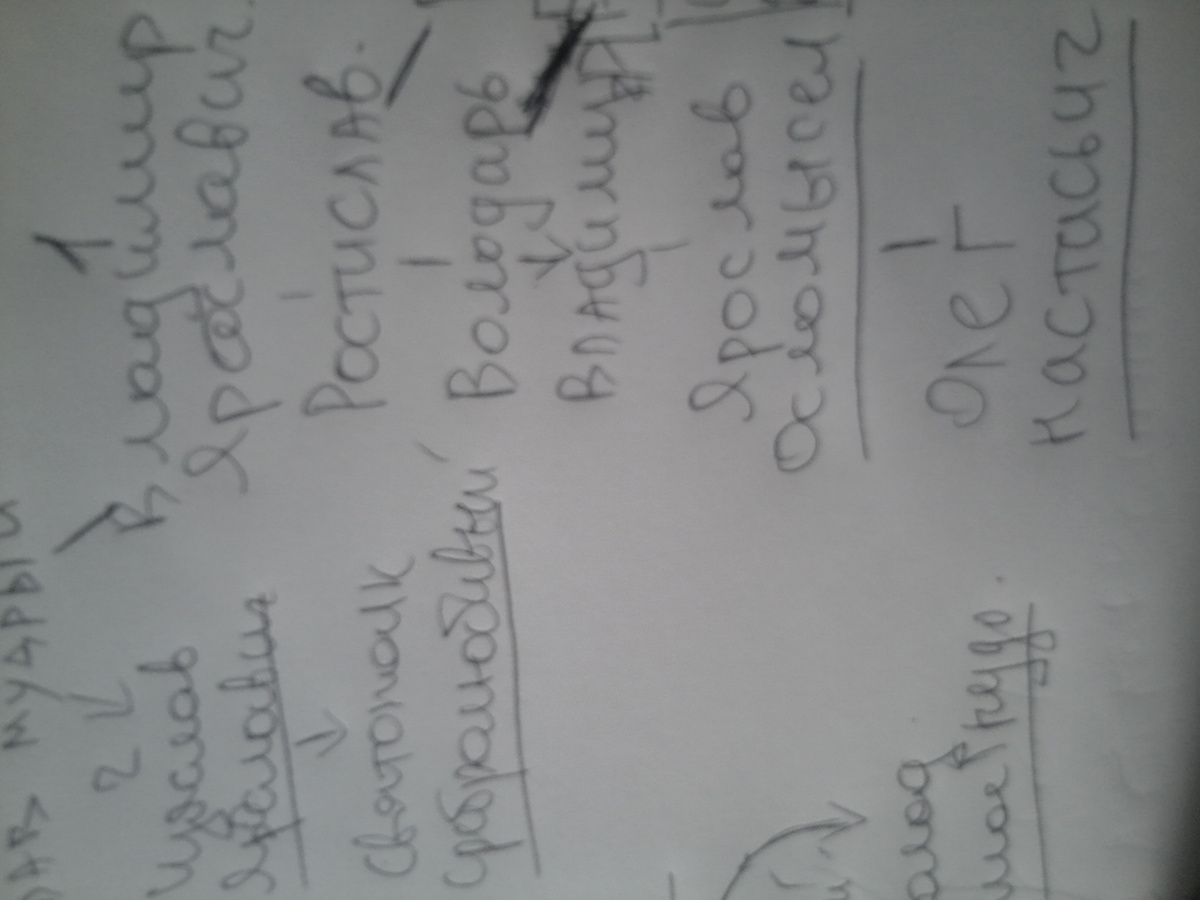 МУДРЫЙ
2
1
Изяслав
Ярославич
Святополк
Сребролюбивый
Владимир
Ярославич.
Ростислав.
Володарь
Владимир
Ярослав
Осмомысел
Олег
Настасьич